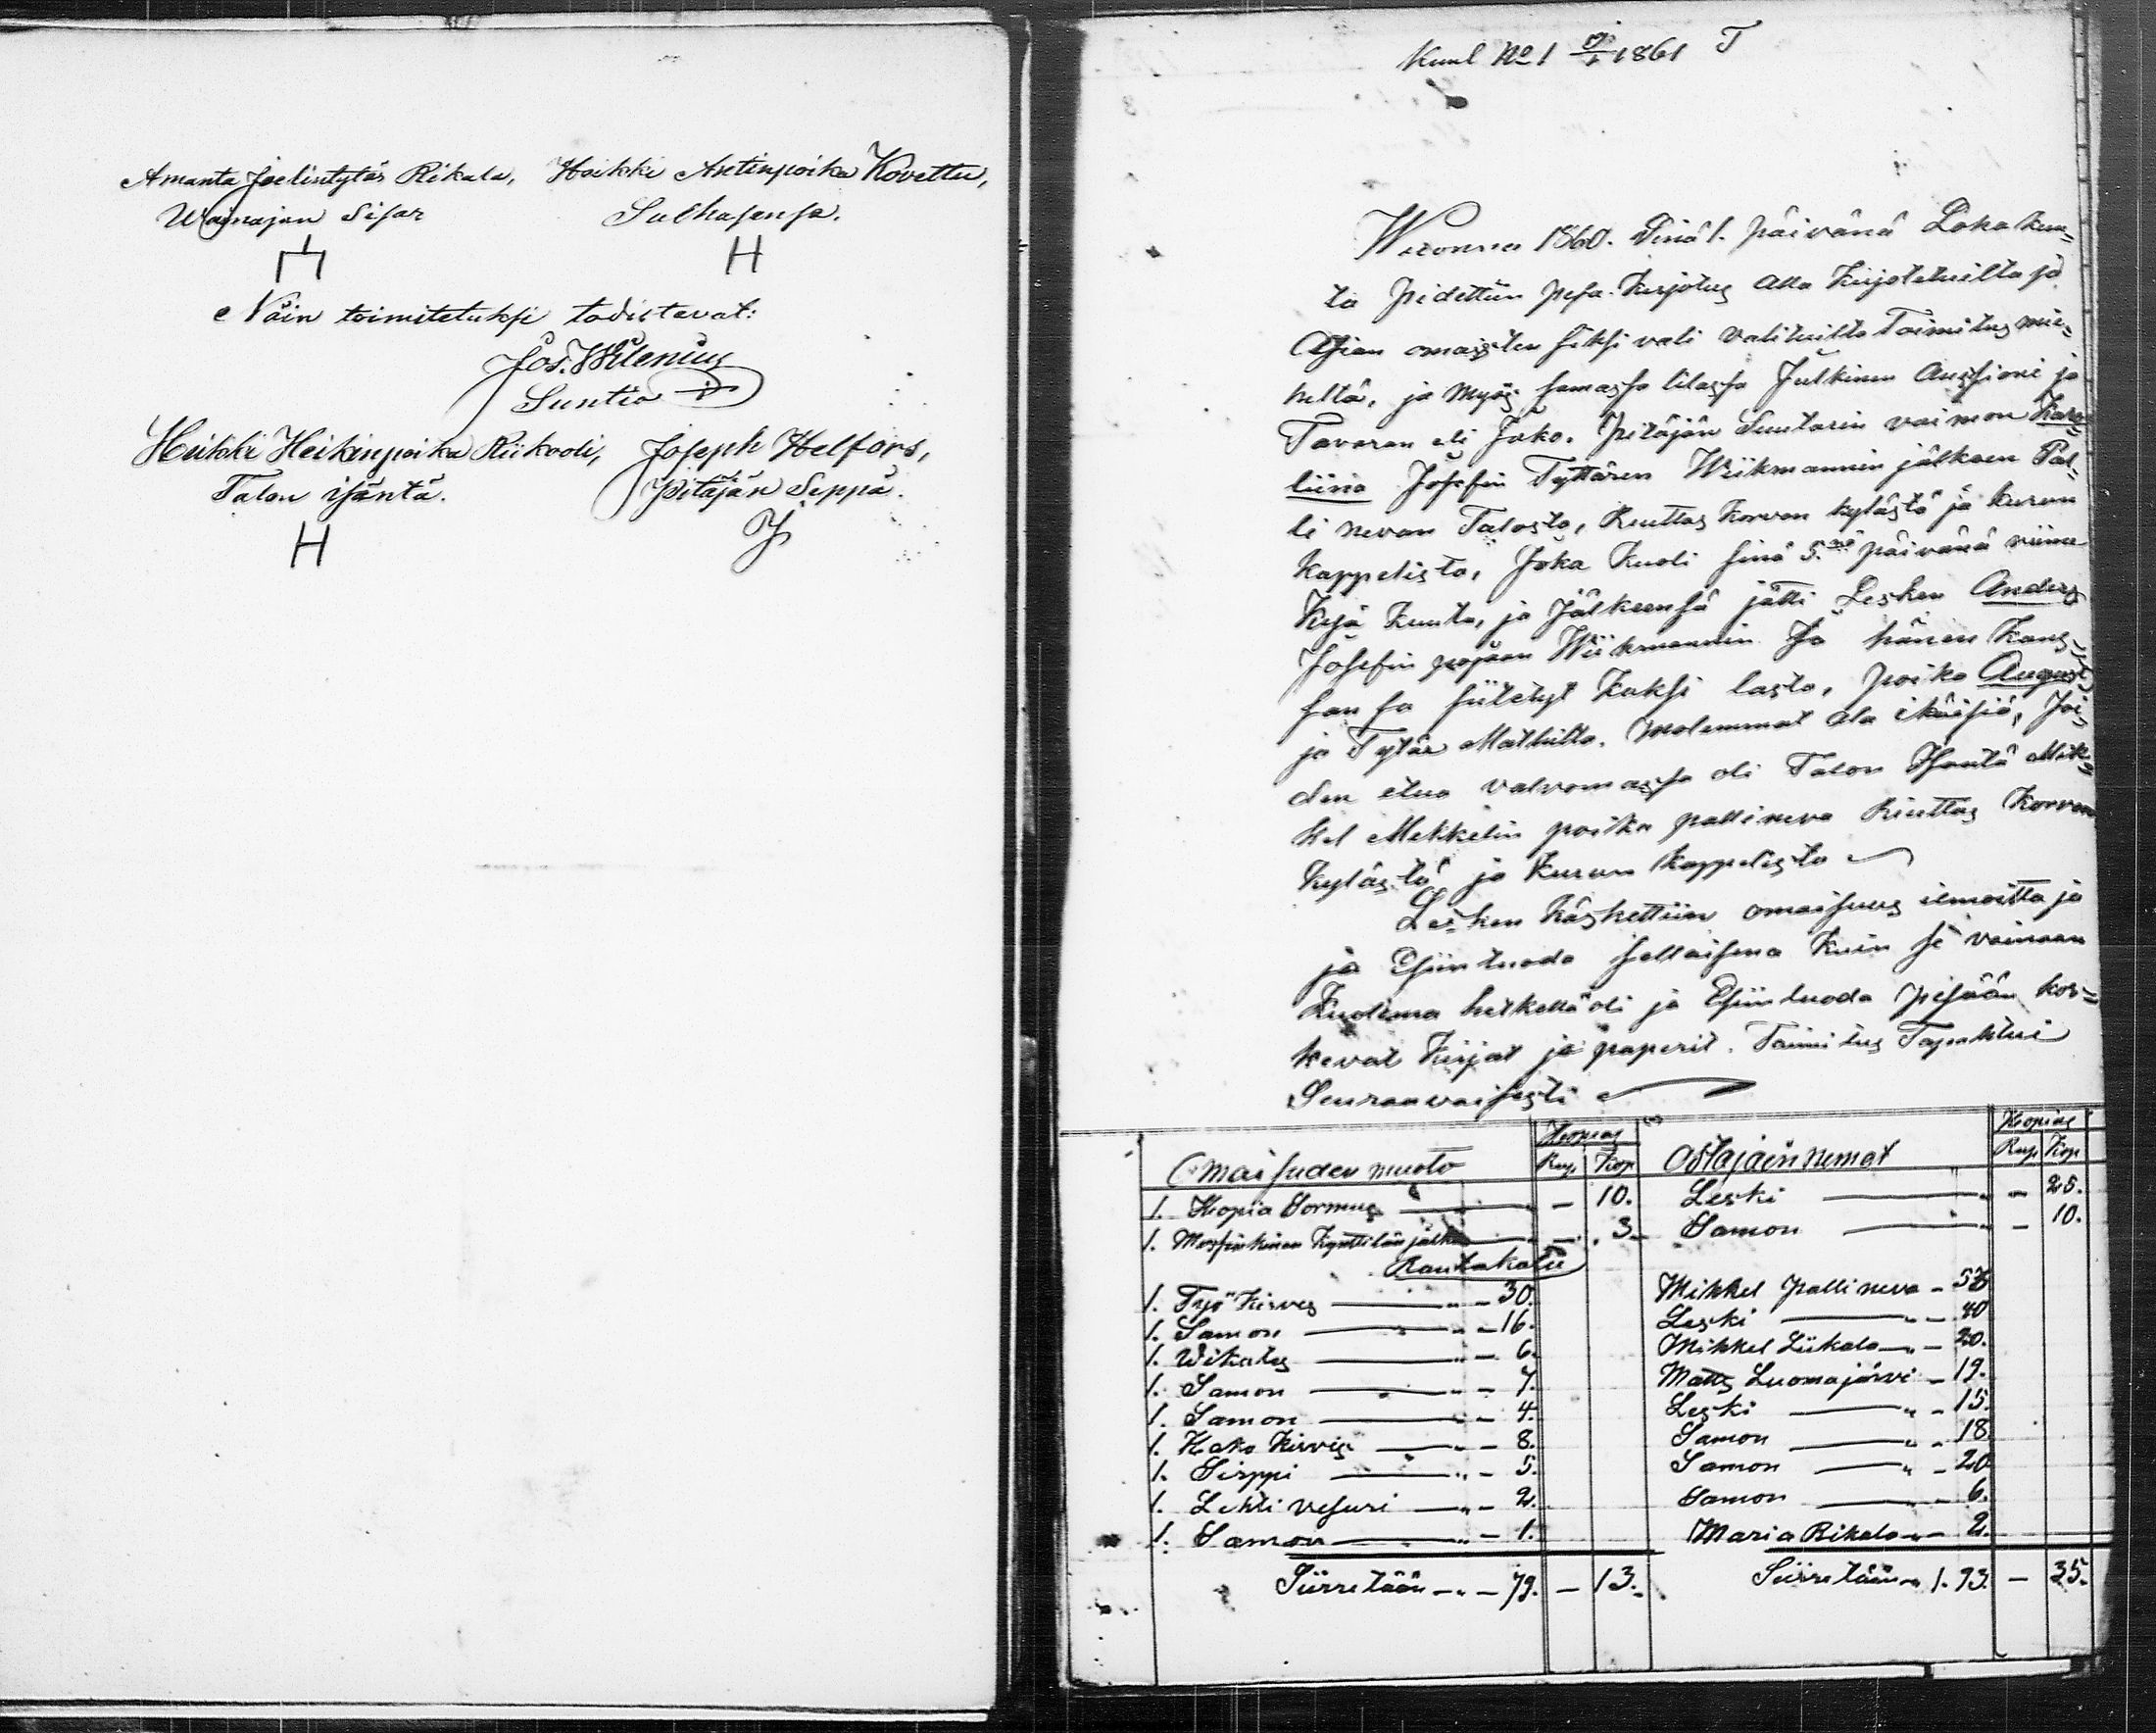 Amanta Joelintytär Rikala, Heikki Antinpoika Kovettu,
Wainajan Sisar Sulhasensa.
H
Näin toimitetuksi todistavat:
Jos. Wilenius
Suntio
Heikki Heikinpoika Riikooli, Joseph Helfors,
Talon isäntä. Pitäjän Seppä.
H J
Kuul No 1 1861 T
Wuonna 1860. Sinä 1. päivänä Loka kuu-
ta pidettiin pesä-kirjotus alla kirjotetuilta ja
Asian omaisten siksi väli valituilto Toimitus mie-
heltä, ja myös samassa tilassa Julkinen Auxsioni ja
Tavaran eli Jako. pitäjän Suutarin vaimon Karo-
liina Josefin Tyttären Wiikmannin jälkeen Pal-
li nevan Talosta, Ruuttas Korvon kylästä ja kurun
kappelista, Joka kuoli sinä 5.nä päivänä viime
Kesä kuuta, ja Jälkeensä jätti Lesken Anders
Josefin pojaan Wiikmannin Ja hänen Kans-
san sa siitetyt kaksi lasta, poika August
ja Tytär Mathilta. molemmat ala ikäisiä, Joi-
den etua valvomassa oli Talon Isäntä Mik-
kel Mekkelin poika pallineva Riuttas Korvon
kylästä ja Kurun kappelista
Lesken käskettiin omaisuus ilmoitta ja
ja Esiin tuoda sellaisena kuin se vainaan
Kuolema hetkellä oli ja Esiin tuoda pesään kos-
kevat kirjat ja paperit. Toimitus Tapahtui
Seuraavaisesti
Omaisuden muoto Hopias Rup. Kop Ostajain nimet Hopias Rup Kop
1. Hopia Sormus — 10. Leski — 25.
1. Messinkinen Kynttilän jalka — 3. Samon — 10.
Rautakalu
1. Työ Kirves — 30. Mikkel Palli neva —
1. Samon — 16. Leski — 40
1. Wikatus — 6. Mikkel Liikala — 20.
1. Samon — 7. Matts Luomajärvi — 19.
1. Samon — 4. Leski — 15.
1. Hako Kirvis — 8. Samon — 18.
1. Sirppi — 5. Samon — 20
1. Lehti vesuri — 2. Samon — 6.
1. Samon — 1. Maria Rikala — 2.
Siirretään — 79. — 13. Siirretään 1. 93. — 35.